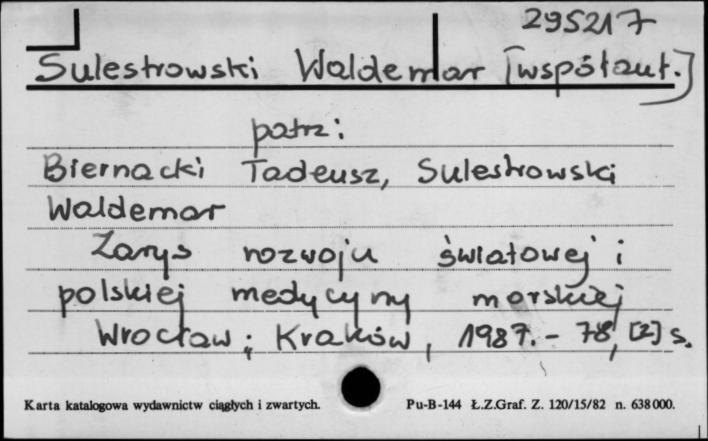 295217
Sulestrowski Waldemar [współaut.]
patrz:
Biernacki Tadeusz, Sulestrowski
Waldemar
Zarys rozwoju światowej i
polskiej medycyny morskiej
Wrocław ; Kraków, 1987. - 78, [2] s.
Karta katalogowa wydawnictw ciągłych i zwartych. Pu-B-144 Ł.Z.Graf. Z. 120/15/82 n. 638 000.